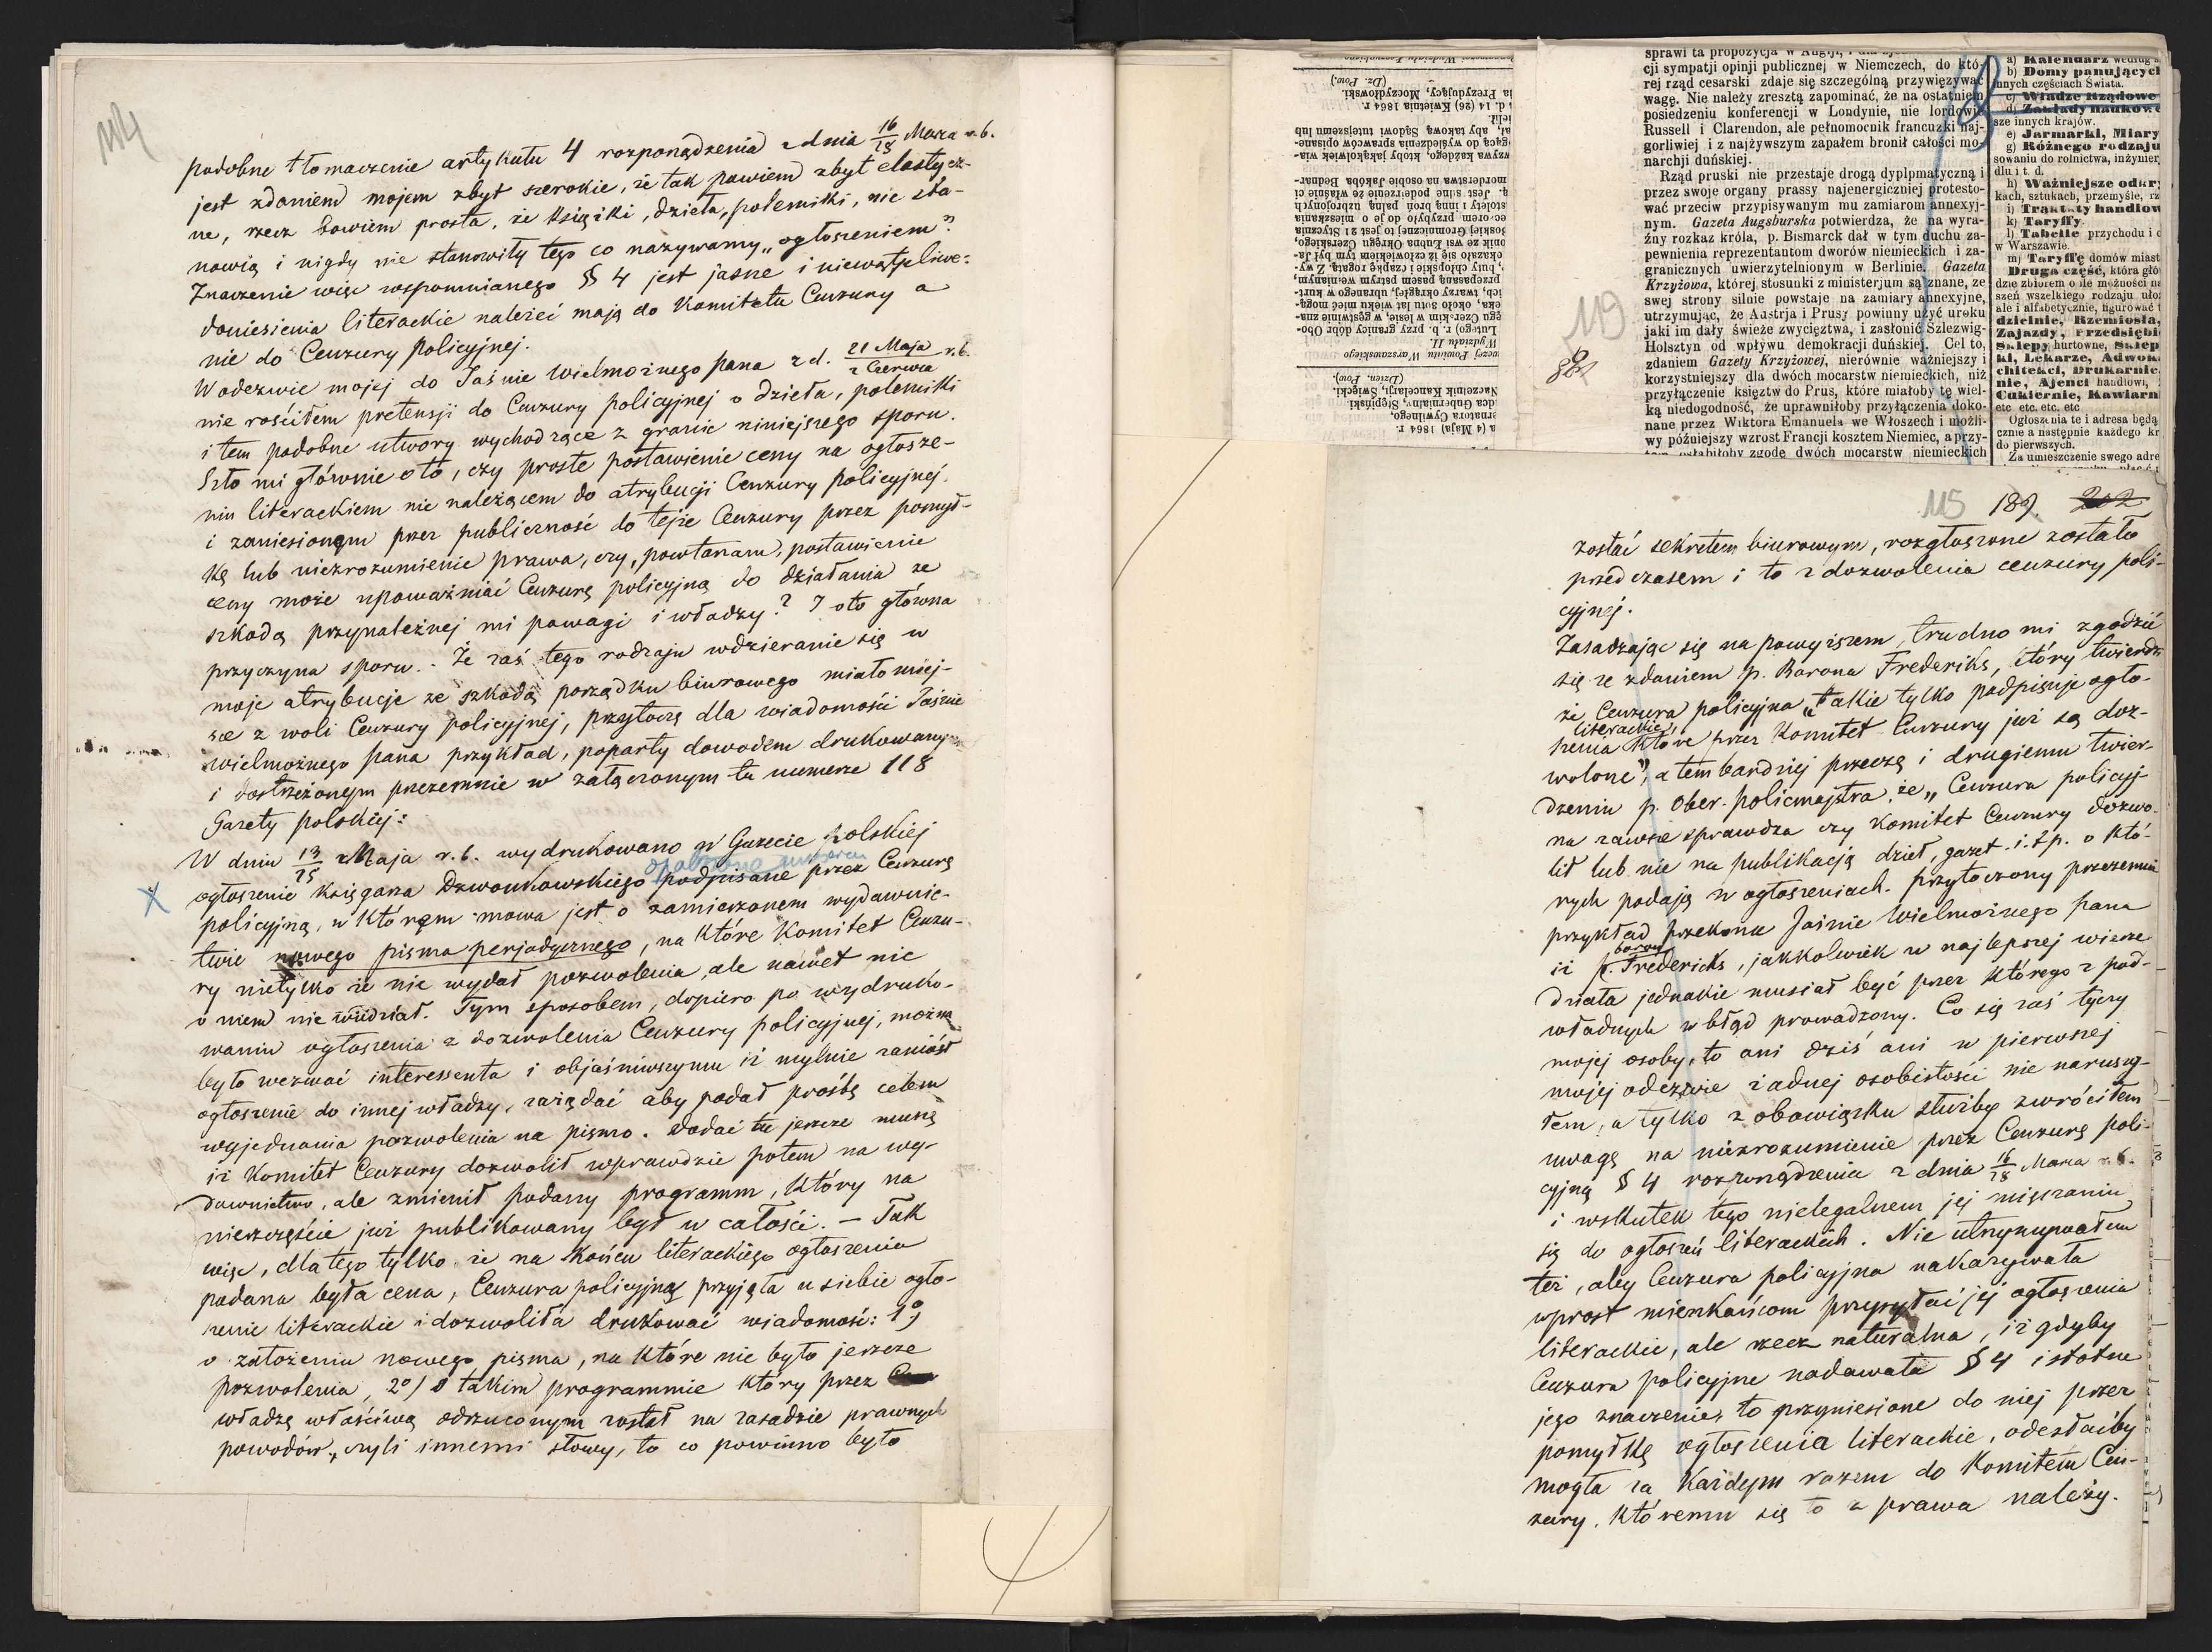 114
podobne tłomaczenie artykułu 4 rozporządzenia z dnia 16/28 Marca r.b.
jest zdaniem mojem zbyt szerokie, że tak powiem zbyt elastycz-
ne, rzecz bowiem prosta, że książki, dzieła, polemiki, nie sta-
nowią i nigdy nie stanowiły tego co nazywamy „ogłoszeniem".
Znaczenie więc wspomnianego § 4 jest jasne i niewątpliwe:
doniesienia literackie należeć mają do Komitetu Cenzury a
nie do Cenzury policyjnej.
W odezwie mojej do Jaśnie Wielmożnego pana z d. 21 Maja/2 Czerwca r.b.
nie rościłem pretensji do Cenzury policyjnej o dzieła, polemiki
i tem podobne utwory wychodzące z granic niniejszego sporu.
Szło mi głównie oto, czy proste postawienie ceny na ogłosze-
niu literackiem nie należącem do atrybucji Cenzury policyjnej,
i zaniesionym przez publiczność do tejże Cenzury przez pomył-
kę lub niezrozumienie prawa, czy, powtarzam, postawienie
ceny może upoważniać Cenzurę policyjną do działania ze
szkodą przynależnej mi powagi i władzy? I oto główna
przyczyna sporu. Że zaś tego rodzaju wdzieranie się w
moje atrybucje ze szkodą porządku biurowego miało miej-
sce z woli Cenzury policyjnej, przytoczę dla wiadomości Jaśnie
wielmożnego pana przykład, poparty dowodem drukowanym
i dostrzeżonym przezemnie w załączonym tu numerze 118
Gazety polskiej:
W dniu 13/25 Maja r.b. wydrukowano w Gazecie polskiej
ogłoszenie księgarza Dzwonkowskiego podpisane przez Cenzurę
policyjną, w którem mowa jest o zamierzonem wydawnic-
twie nowego pisma perjodycznego, na które Komitet Cenzu-
ry nietylko że nie wydał pozwolenia, ale nawet nic
o niem nie wiedział. Tym sposobem, dopiero po wydruko-
waniu ogłoszenia z dozwolenia Cenzury policyjnej, można
było wezwać interessenta i objaśniwszy mu iż mylnie zaniósł
ogłoszenie do innej władzy, zażądać aby podał prośbę celem
wyjednania pozwolenia na pismo. Dodać tu jeszcze muszę
iż Komitet Cenzury dozwolił wprawdzie potem na wy-
dawnictwo, ale zmienił podany programm, który na
nieszczęście już publikowany był w całości. — Tak
więc, dla tego tylko że na końcu literackiego ogłoszenia
podana była cena, Cenzura policyjna przyjęła u siebie ogło-
szenie literackie i dozwoliła drukować wiadomość: 1o/
o założeniu nowego pisma, na które nie było jeszcze
pozwolenia, 2o/ o takim programmie który przez
władzę właściwą odrzuconym został na zasadzie prawnych
powodów, czyli innemi słowy, to co powinno było
sprawi ta propozycja w Anglji,
cji sympatji opinji publicznej w Niemczech, do któ-
rej rząd cesarski zdaje się szczególną przywięzywać
wagę. Nie należy zresztą zapominać, że na ostatniem
posiedzeniu konferencji w Londynie, nie lordowie
Russell i Clarendon, ale pełnomocnik francuzki naj-
gorliwiej i z najżywszym zapałem bronił całości mo-
narchji duńskiej.
Rząd pruski nie przestaje drogą dyplpmatyczną i
przez swoje organy prassy najenergiczniej protesto-
wać przeciw przypisywanym mu zamiarom annexyj-
nym. Gazeta Augsburska potwierdza, że na wyra-
źny rozkaz króla, p. Bismarck dał w tym duchu za-
pewnienia reprezentantom dworów niemieckich i za-
granicznych uwierzytelnionym w Berlinie. Gazeta
Krzyżowa, której stosunki z ministerjum są znane, ze
swej strony silnie powstaje na zamiary annexyjne,
utrzymując, że Austrja i Prusy powinny użyć uroku
jaki im dały świeże zwycięztwa, i zasłonić Szlezwig-
Holsztyn od wpływu demokracji duńskiej. Cel to,
zdaniem Gazety Krzyżowej, nierównie ważniejszy i
korzystniejszy dla dwóch mocarstw niemieckich, niż
przyłączenie księztw do Prus, które miałoby tę wiel-
ką niedogodność, że uprawniłoby przyłączenia doko-
nane przez Wiktora Emanuela we Włoszech i możli-
wy późniejszy wzrost Francji kosztem Niemiec, a przy-
tem osłabiłoby zgodę dwóch mocarstw niemieckich
a) Kalendarz według
b) Domy panujących
innych częściach Świata.
c) Władze Rządowe
d) Zakłady naukowe
sze innych krajów.
e) Jarmarki, Miary
g) Różnego rodzaju
sowaniu do rolnictwa, inżynier
dlu i t. d.
h) Ważniejsze odkry
kach, sztukach, przemyśle, rz
i) Traktaty handlow
k) Taryffy.
l) Tabelle przychodu i
w Warszawie.
m) Taryffę domów miast
Druga część, która głó
dzie zbiorem o ile możności
szeń wszelkiego rodzaju uło
ale i alfabetycznie, figurować
dzielnie, Rzemiosła,
Zajazdy, Przedsiębi
Sklepy hurtowne, Sklep
ki, Lekarze, Adwok
chitekci, Drukarnie,
nie, Ajenci handlowi,
Cukiernie, Kawiarni
etc. etc. etc. etc
Ogłoszenia te i adresa będą
cznie a następnie każdego kr
do pierwszych.
Za umieszczenie swego adre
119
a (4 Maja) 1864 r.
ernatora Cywilnego,
adca Gubernialny, Stępiński.
Naczelnik Kancelarji, Święcki.
(Dzien. Pow.)
uczej Powiatu Warszawskiego
Wydziału II.
Lutego) r. b. przy granicy dóbr Obo-
ęgu Czerskim w lesie, w gęstwinie zna-
eka, około 50tu lat wieku mieć mogą-
ich, twarzy okrągłej, ubranego w kurt-
przepasaną pasem pstrym wełnianym,
, buty chłopskie i czapkę rogatą. Z wy-
okazało się iż człowiekiem tym był Ja-
bnik ze wsi Łubna Okręgu Czerskiego,
boskiej Gromnicznej to jest 21 Stycznia
eczorem przybyło do je o mieszkania
stolety i inną broń palną uzbrojonych
ą. Jest silne podejrzenie że właśnie ci
morderstwa na osobie Jakóba Bednar-
wzywa każdego, ktoby jakąkolwiek wia-
gącą do wyśledzenia sprawców opisane-
ał, aby takową Sądowi tutejszemu lub
ielił.
d. 14 (26) Kwietnia 1864 r.
ia Prezydujący, Moczydłowski.
(Dz. Pow.)
115 189. 202
zostać sekretem biurowym, rozgłoszone zostało
przed czasem i to z dozwolenia cenzury poli-
cyjnej.
Zasadzając się na powyższem, trudno mi zgodzić
się ze zdaniem p. Barona Frederiks, który twierdzi
że Cenzura policyjna „takie tylko podpisuje ogło-
literackie
szenia które przez Komitet Cenzury już są doz-
wolone", a tem bardziej przeczę i drugiemu twier-
dzeniu p. Ober-policmajstra, że „Cenzura policyj-
na zawsze sprawdza czy Komitet Cenzury dozwo-
lił lub nie na publikacją dzieł, gazet i.t.p. o któ-
rych podają w ogłoszeniach. przytoczony przezemnie
przykład przekona Jaśnie Wielmożnego pana
baron
iż p. Fredericks, jakkolwiek w najlepszej wierze
działa jednakże musiał być przez którego z pod-
władnych w błąd prowadzony. Co się zaś tyczy
mojej osoby, to ani dziś ani w pierwszej
mojej odezwie żadnej osobistości nie naruszy-
łem, a tylko z obowiązku służby zwróciłem
uwagę na niezrozumienie przez Cenzurę poli-
cyjną § 4 rozporządzenia z dnia 16/28 Marca r.b.
i wskutek tego nielegalnem jej mięszaniu
się do ogłoszeń literackich. Nie utrzymywałem
też, aby Cenzura policyjna nakazywała
wprost mieszkańcom przysyłać jej ogłoszenia
literackie, ale rzecz naturalna, iż gdyby
Cenzura policyjne nadawała § 4 istotne
jego znaczenie, to przyniesione do niej przez
pomyłkę ogłoszenia literackie, odesłaćby
mogła za każdym razem do Komitetu Cen-
zury, któremu się to z prawa należy.